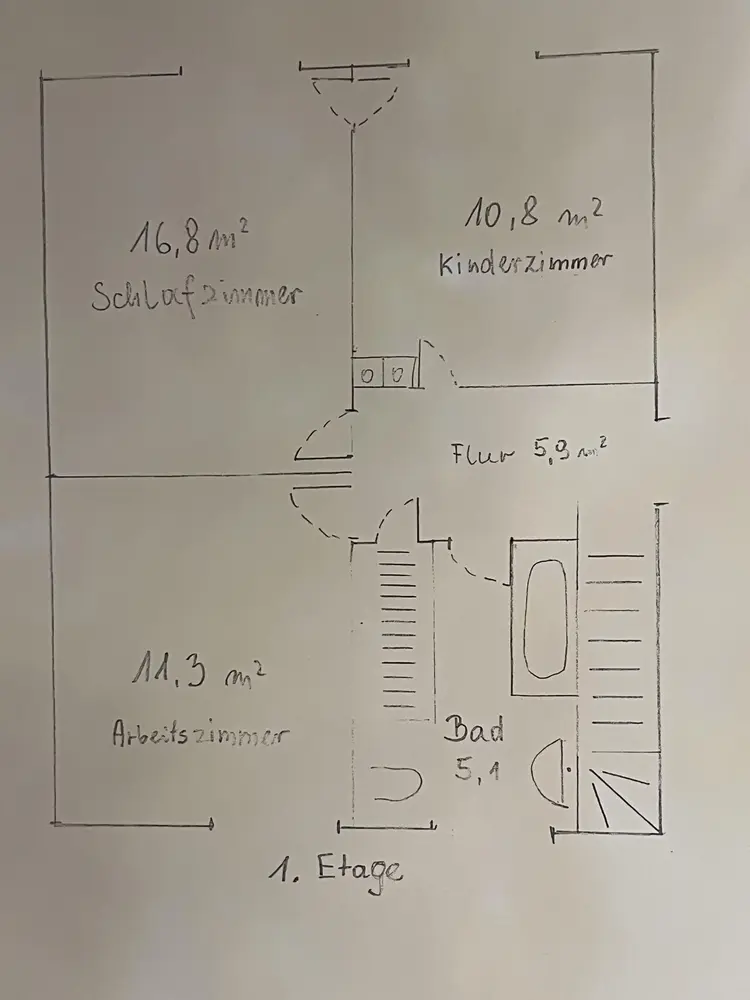 16,8 m²
Schlafzimmer
10,8 m²
Kinderzimmer
Flur 5,9 m²
11,3 m²
Arbeitszimmer
Bad
5,1
1. Etage